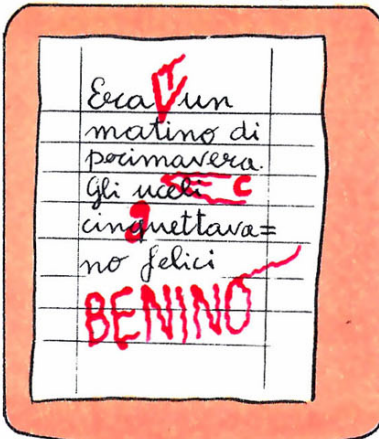 Era T un
matino di
primavera.
Gli uceli c
cinguettava=
no felici
BENINO